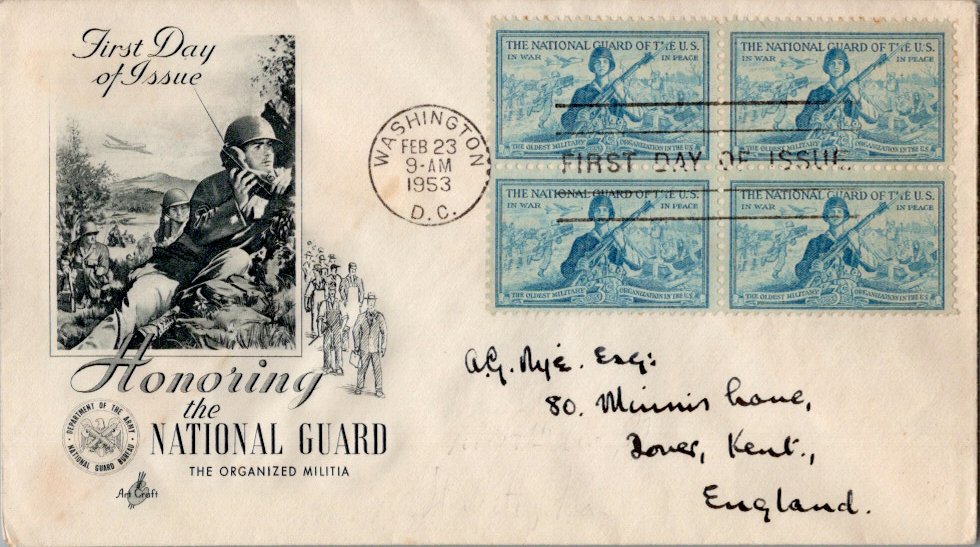 First Day
of Issue
WASHINGTON
FEB 23
9-AM
1953
D.C.
THE NATIONAL GUARD OF THE U.S.
IN WAR IN PEACE
THE OLDEST MILITARY ORGANIZATION IN THE U.S.
THE NATIONAL GUARD OF THE U.S.
IN WAR IN PEACE
THE OLDEST MILITARY ORGANIZATION IN THE U.S.
FIRST DAY OF ISSUE
THE NATIONAL GUARD OF THE U.S.
IN WAR IN PEACE
THE OLDEST MILITARY 3¢ ORGANIZATION IN THE U.S.
THE NATIONAL GUARD OF THE U.S.
IN WAR IN PEACE
THE OLDEST MILITARY 3¢ ORGANIZATION IN THE U.S.
Honoring
the
NATIONAL GUARD
THE ORGANIZED MILITIA
DEPARTMENT OF THE ARMY
NATIONAL GUARD BUREAU
Art Craft
A.G. Nye. Esq:
80. Minnis Lane,
Dover, Kent.,
England.